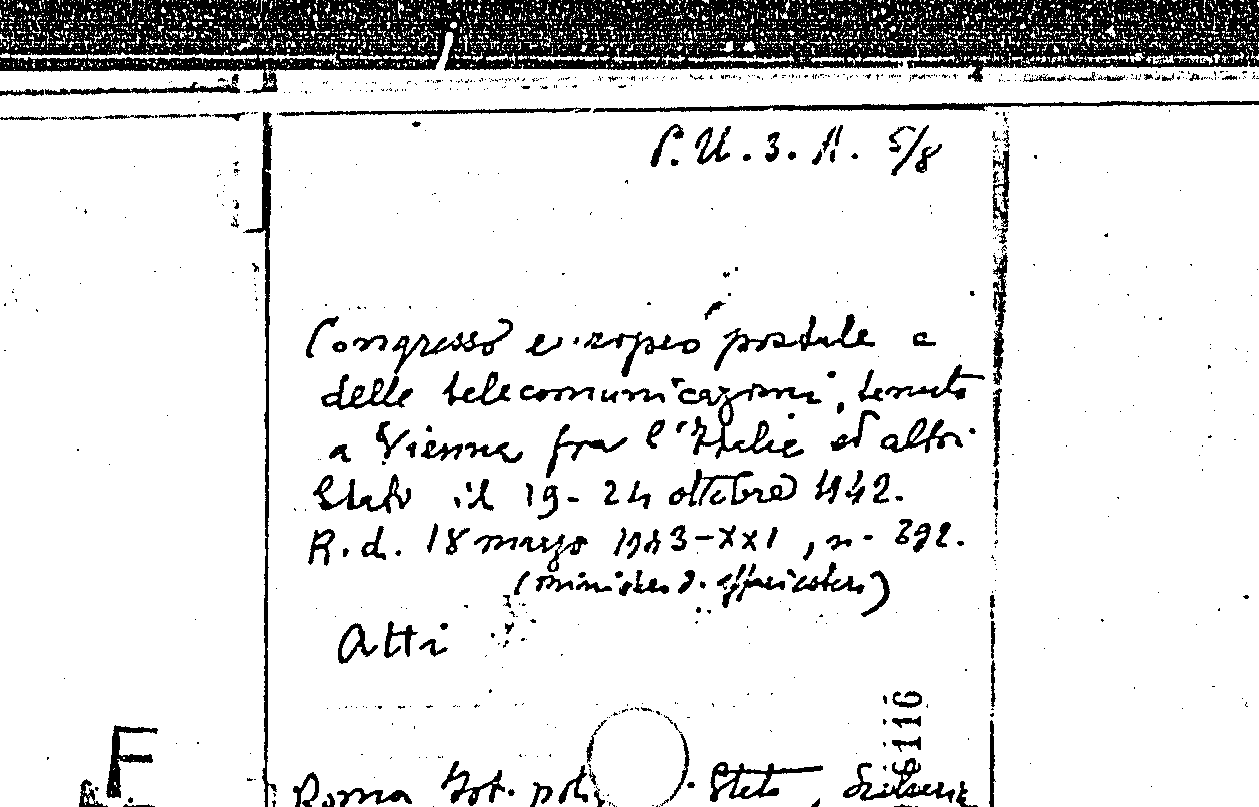 P.U.3.A. 5/8
Congresso europeo postale e
delle telecomunicazioni, tenuto
a Vienna fra l'Italia ed altri
Stati il 19-24 ottobre 1942.
R.d. 18 marzo 1943-XXI, n. 392.
(Ministero d. affari esteri)
Atti
6116
F
Roma Ist. Stato,